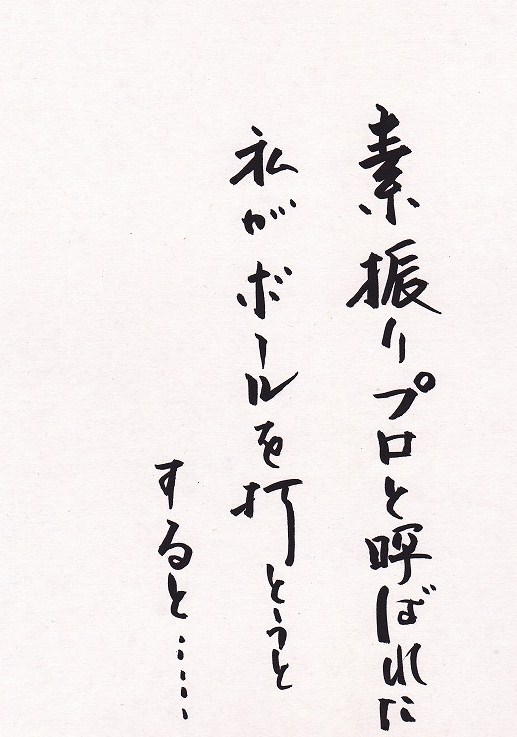 素振りプロと呼ばれた
私がボールを打とうと
すると……